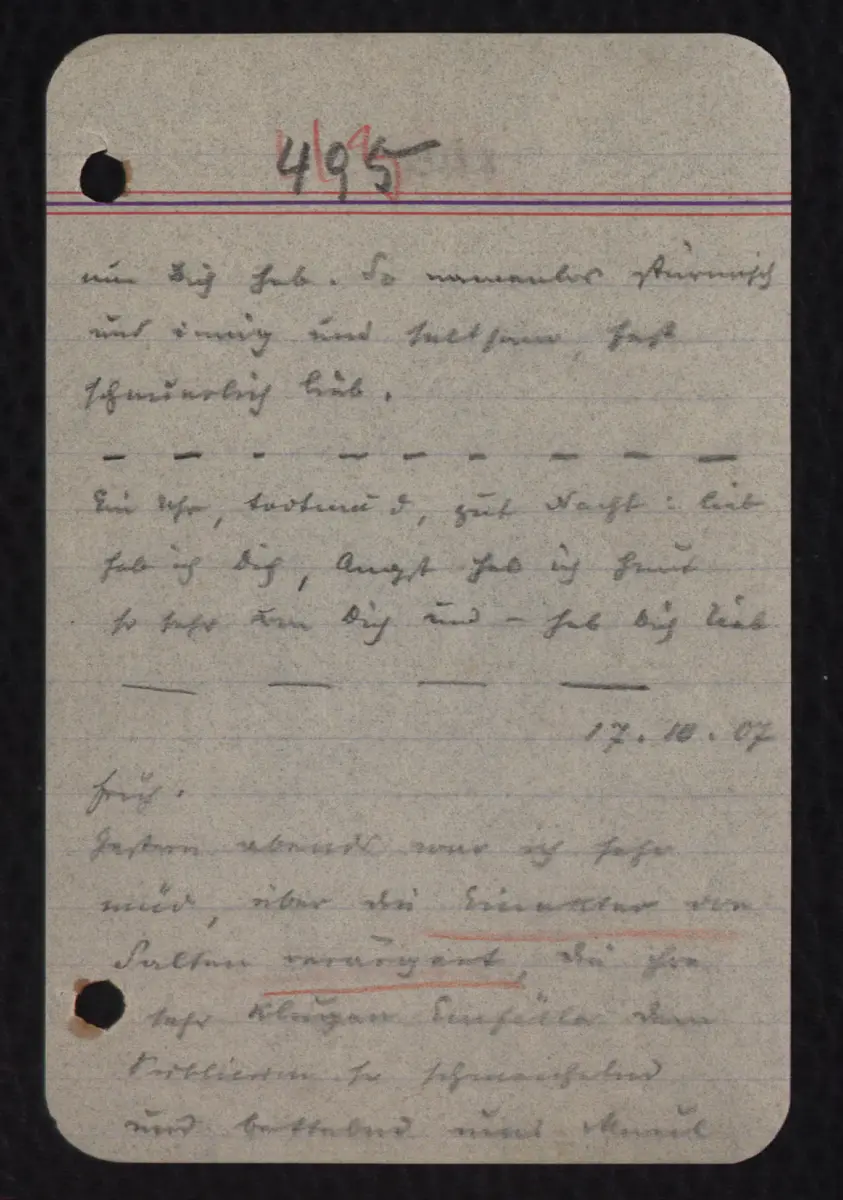 495
nun Dich hab. So namenlos stürmisch
und innig und seltsam, fast
schauerlich lieb.
Ein Uhr, todtmüd, gut Nacht: lieb
hab ich Dich, Angst hab ich heut
so sehr um Dich und – hab Dich lieb
17.10.07
früh.
Gestern abends war ich sehr
müd, über die Einakter von
Salten verärgert, die ihre
sehr klugen Einfälle dem
Publicum so schmeichelnd
und bettelnd ums Maul